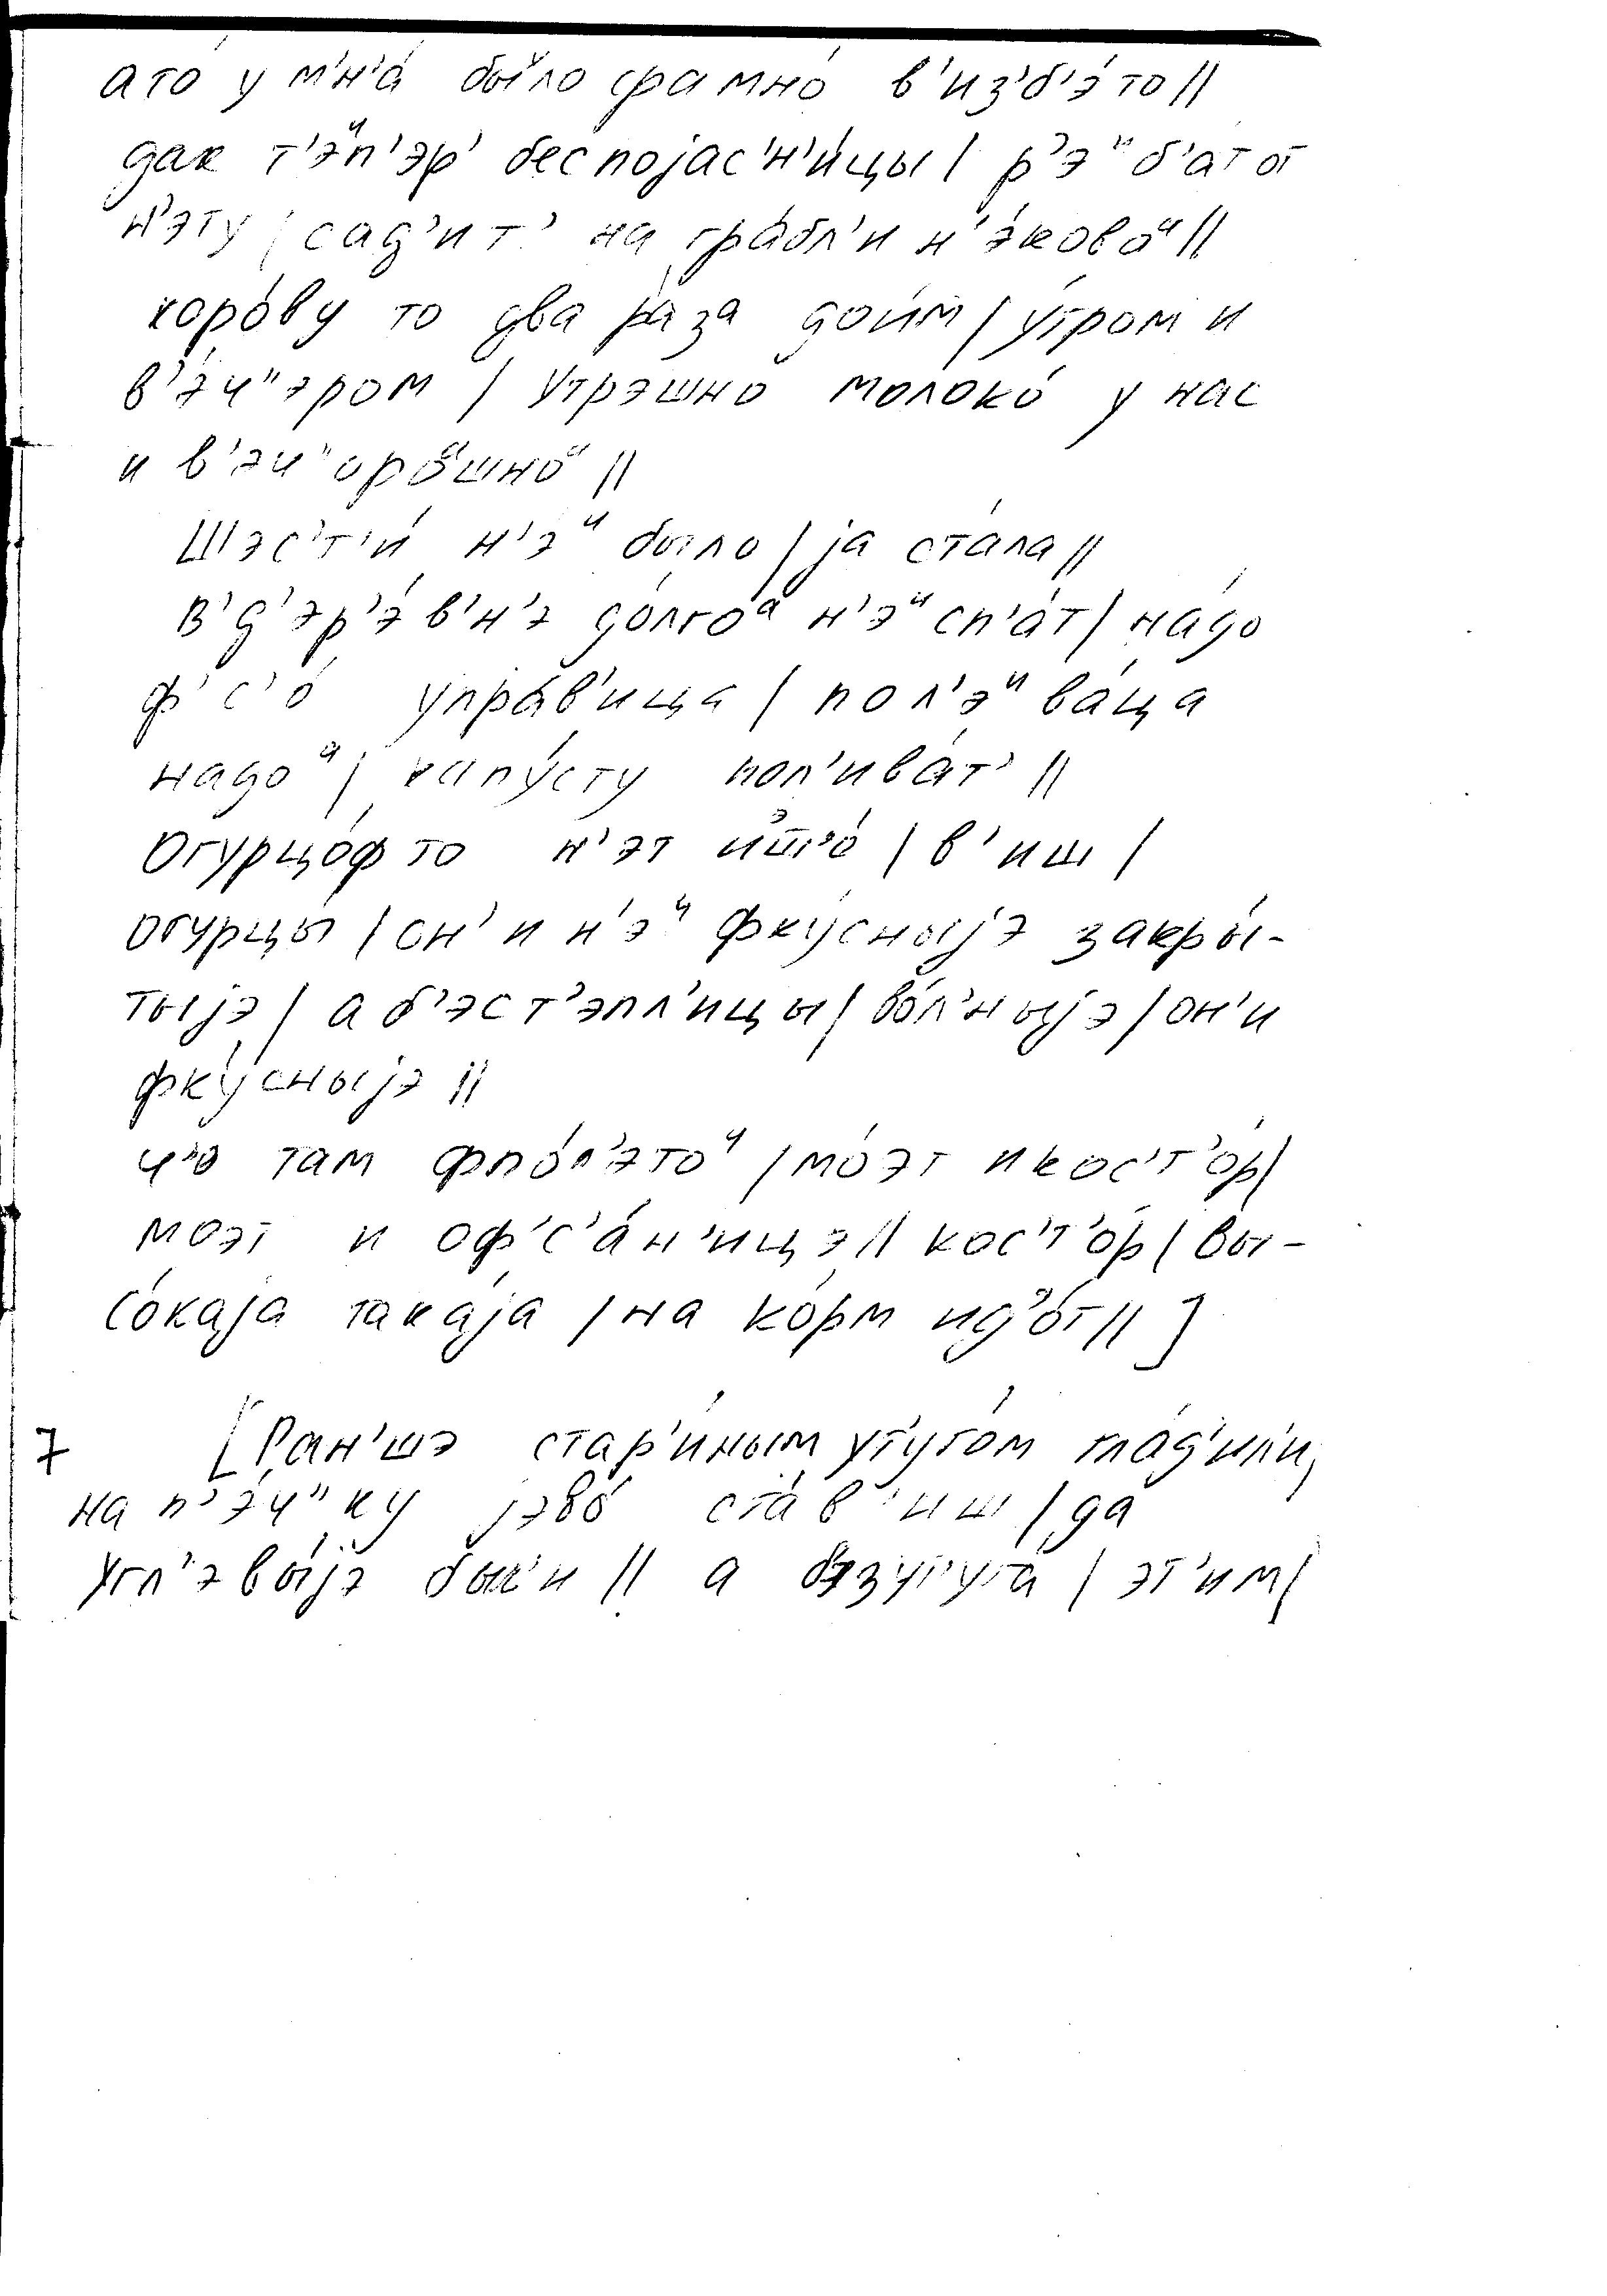 ато́ у м'н'а́ бы́ло срамно́ в'из'б'э́то ||
дак т'эⁿп'эр' беспоjас'н'и́цы | р'эⁿб'ат от
н'эту | сад'ит' на гра́бл'и н'э́ковоⁿ ||
коро́ву то два ра́за дои́м | у́тром и
в'э́ч"эром | Утрэшно молоко́ у нас
и в'эч"орӧшноⁿ ||
Шэс'т'и́ н'эⁿ было | jа ста́ла ||
В'д'эр'э́в'н'э до́лгоᵃ н'эⁿ сп'а́т | на́до
ф'с'о́ упра́в'ица | пол'эⁿва́ца
надоᵃ | капу́сту пол'ива́т' ||
Огурцо́ф то н'эт ишʼо́ | в'иш |
огурцы́ | он'и н'эⁿ фку́сныjэ закры́-
тыjэ | а б'эст'эпл'ицы | во́л'ныjэ | он'и
фку́сныjэ ||
ч"о там фпо́л'этоⁿ | мо́эт и кос'т'о́р |
моэт и оф'с'а́н'ицэ || кос'т'о́р | вы-
со́каjа така́jа | на ко́рм ид'о́т || ]
7 [Ран'шэ стар'и́ным ут'уго́м гла́д'ил'и,
на п'э́ч"ку jэво́ ста́в'иш | да
угл'эвы́jэ был'и || а бэзут'уга́ | эт'им |